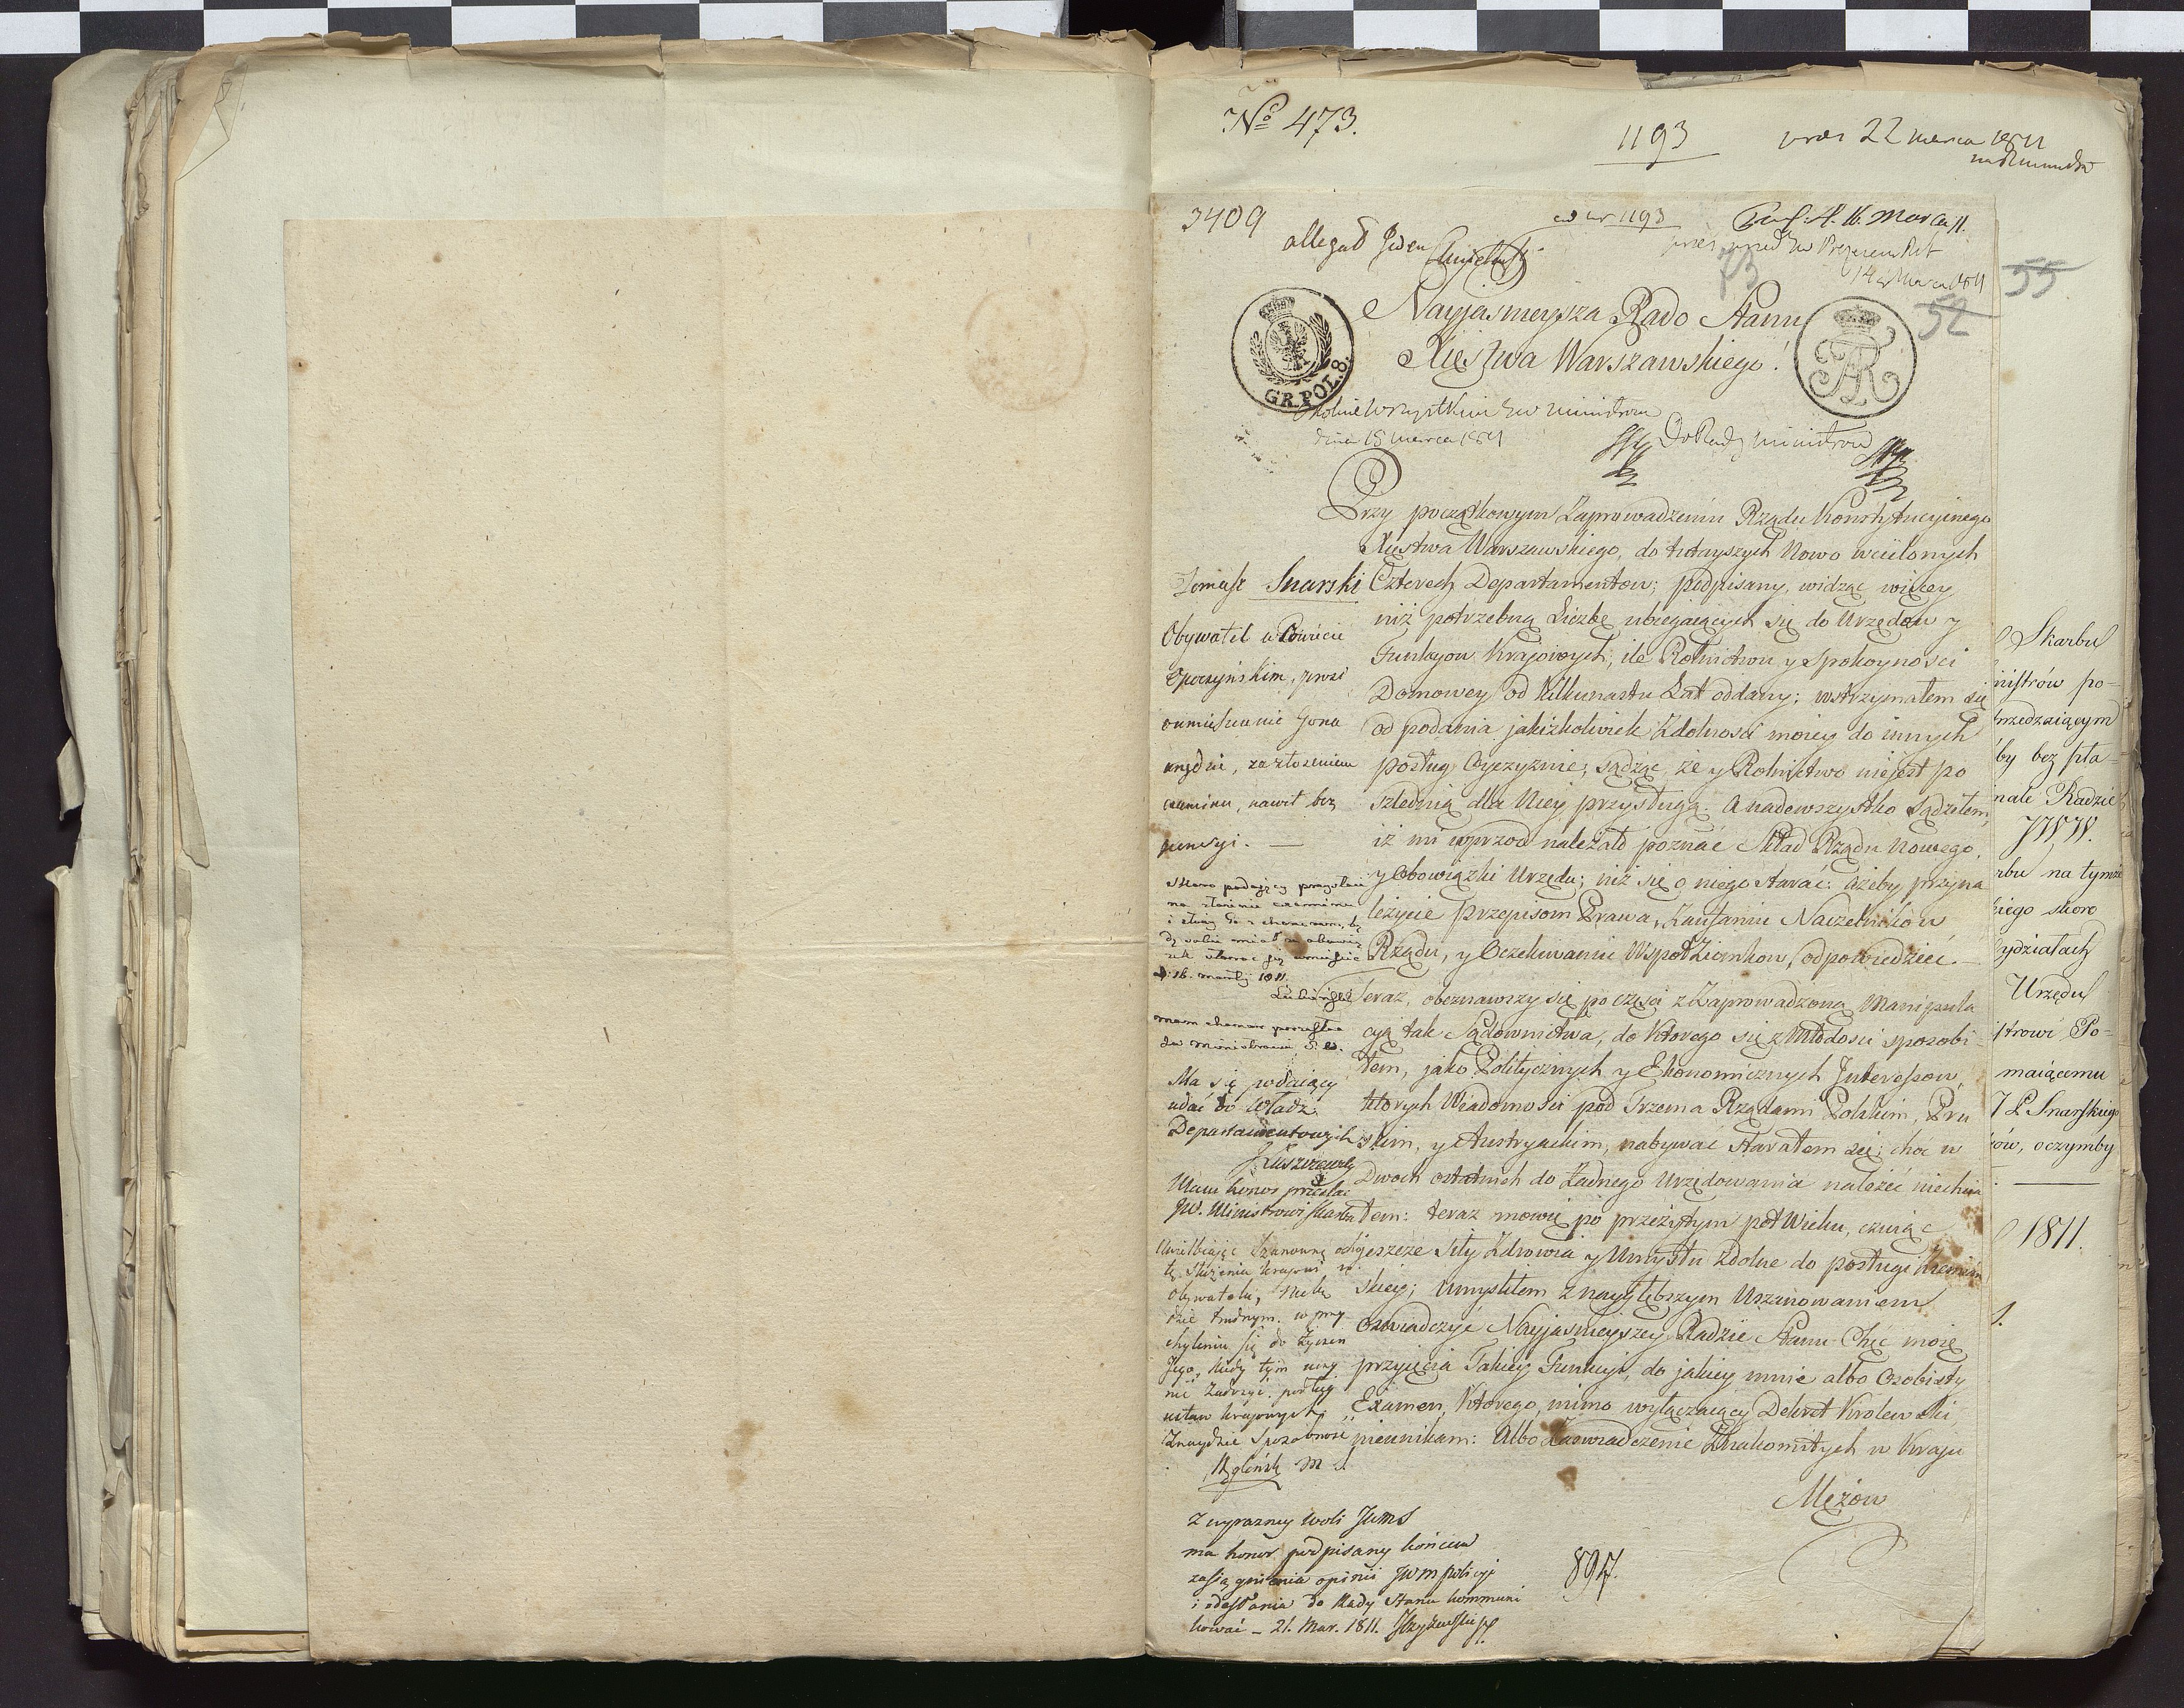 No 473.
1193
22 marca 1811
3409
w nr 1193
allegat Jeden
Pras: d. 16. Marca 11.
14 Marca 1811
73
55
52
Nayjasnieysza Rado Stanu
Xięstwa Warszawskiego!
GR.POL.8.
wszystkim JW Ministrom
dnia 15 marca 1811
Do Rady Ministrow
Przy początkowym Zaprowadzeniu Rządu Konstytucyinego
Xięstwa Warszawskiego, do tutayszych Nowo wcielonych
Czterech Departamentow; podpisany, widząc więcey
niż potrzebną Liczbę ubiegaiących się do Urzędow y
Funkcyow Krajowych, ile Rolnictwu y Spokoyności
Domowey od Kilkunastu Lat oddany; wstrzymałem się
od podania jakiżkolwiek Zdolności moiey do innych
posług Oyczyznie; sądząc, że y Rolnictwo niejest po
sslednią dla Niey przysługą. A nadewszystko sądziłem,
iż mi wprzod należało poznać Skład Rządu Nowego,
y Obowiązki Urzędu; niż się o niego starać: ażeby przyna
leżycie przepisom Prawa, Zaufaniu Naczelnikow
Rządu, y Oczekiwaniu WspołZiomkow, odpowiedzieć.—
Teraz, obeznawszy się po części z Zaprowadzoną Manipula
cyą tak Sądownictwa, do Ktorego się z Młodości sposobi-
łem, jako Politycznych y Ekonomicznych Interessow,
ktorych Wiadomości pod Trzema Rządami Polskim, Pru
skim, y Austryackim, nabywać starałem się; choć w
Dwoch ostatnich do Żadnego Urzędowania należeć niechcia
łem: teraz mowię po przeżytym pół Wieku, czując
jeszcze siły Zdrowia y Umysłu Zdolne do posługi Ziemian
skiey; Umyśliłem z nayglębszym Uszanowaniem
oswiadczyć Nayjasnieyszey Radzie Stanu Chęć moię
przyięcia Takiey Funkcyi, do jakiey mnie albo Osobisty
Examen, Ktorego, mimo wyłączaiący Dekret Krolewski
nieunikam: Albo Zaswiadczenie Znakomitych w Kraju
Mężow
Tomasz Snarski
Obywatel w Powiecie
Opoczyńskim, prosi
oumieszczenie Gona
urzędzie, zazłożeniem
examinu, nawet bez
pensyi. —
Skoro podaiący
na złożenie examinu
d: 16. marca 1811.
Łubieński
mam honor przesłać
Ma się podaiący
udać do Władz
Departamentowych
J Łuszczewski
Mam honor przesłać
JW. Ministrowi Skarbu
Uwielbiając Szanowną ocho
tę służenia krajowi w
Obywatelu, niebę
dzie trudnym w przy
chyleniu się do życzen
Jego, kiedy tym uczy
nić zadosyć podług
ustaw krajowych
Znaydzie sposobność
Węgleński M S.
Z wyrazney woli JWMS
ma honor podpisany końcem
zasiągnienia opinii JWM policyi
i odesłania do Rady Stanu kommuni
kować - 21. Mar. 1811.
897.
Skarbu
nistrów po-
rzedzaiącym
by bez pła-
nale Radzie
JWW.
rbu na tymże
kiego skoro
ydziałach
Urzędu
strowi Po-
maiącemu
Snarskiego
ów, oczymby
1811.